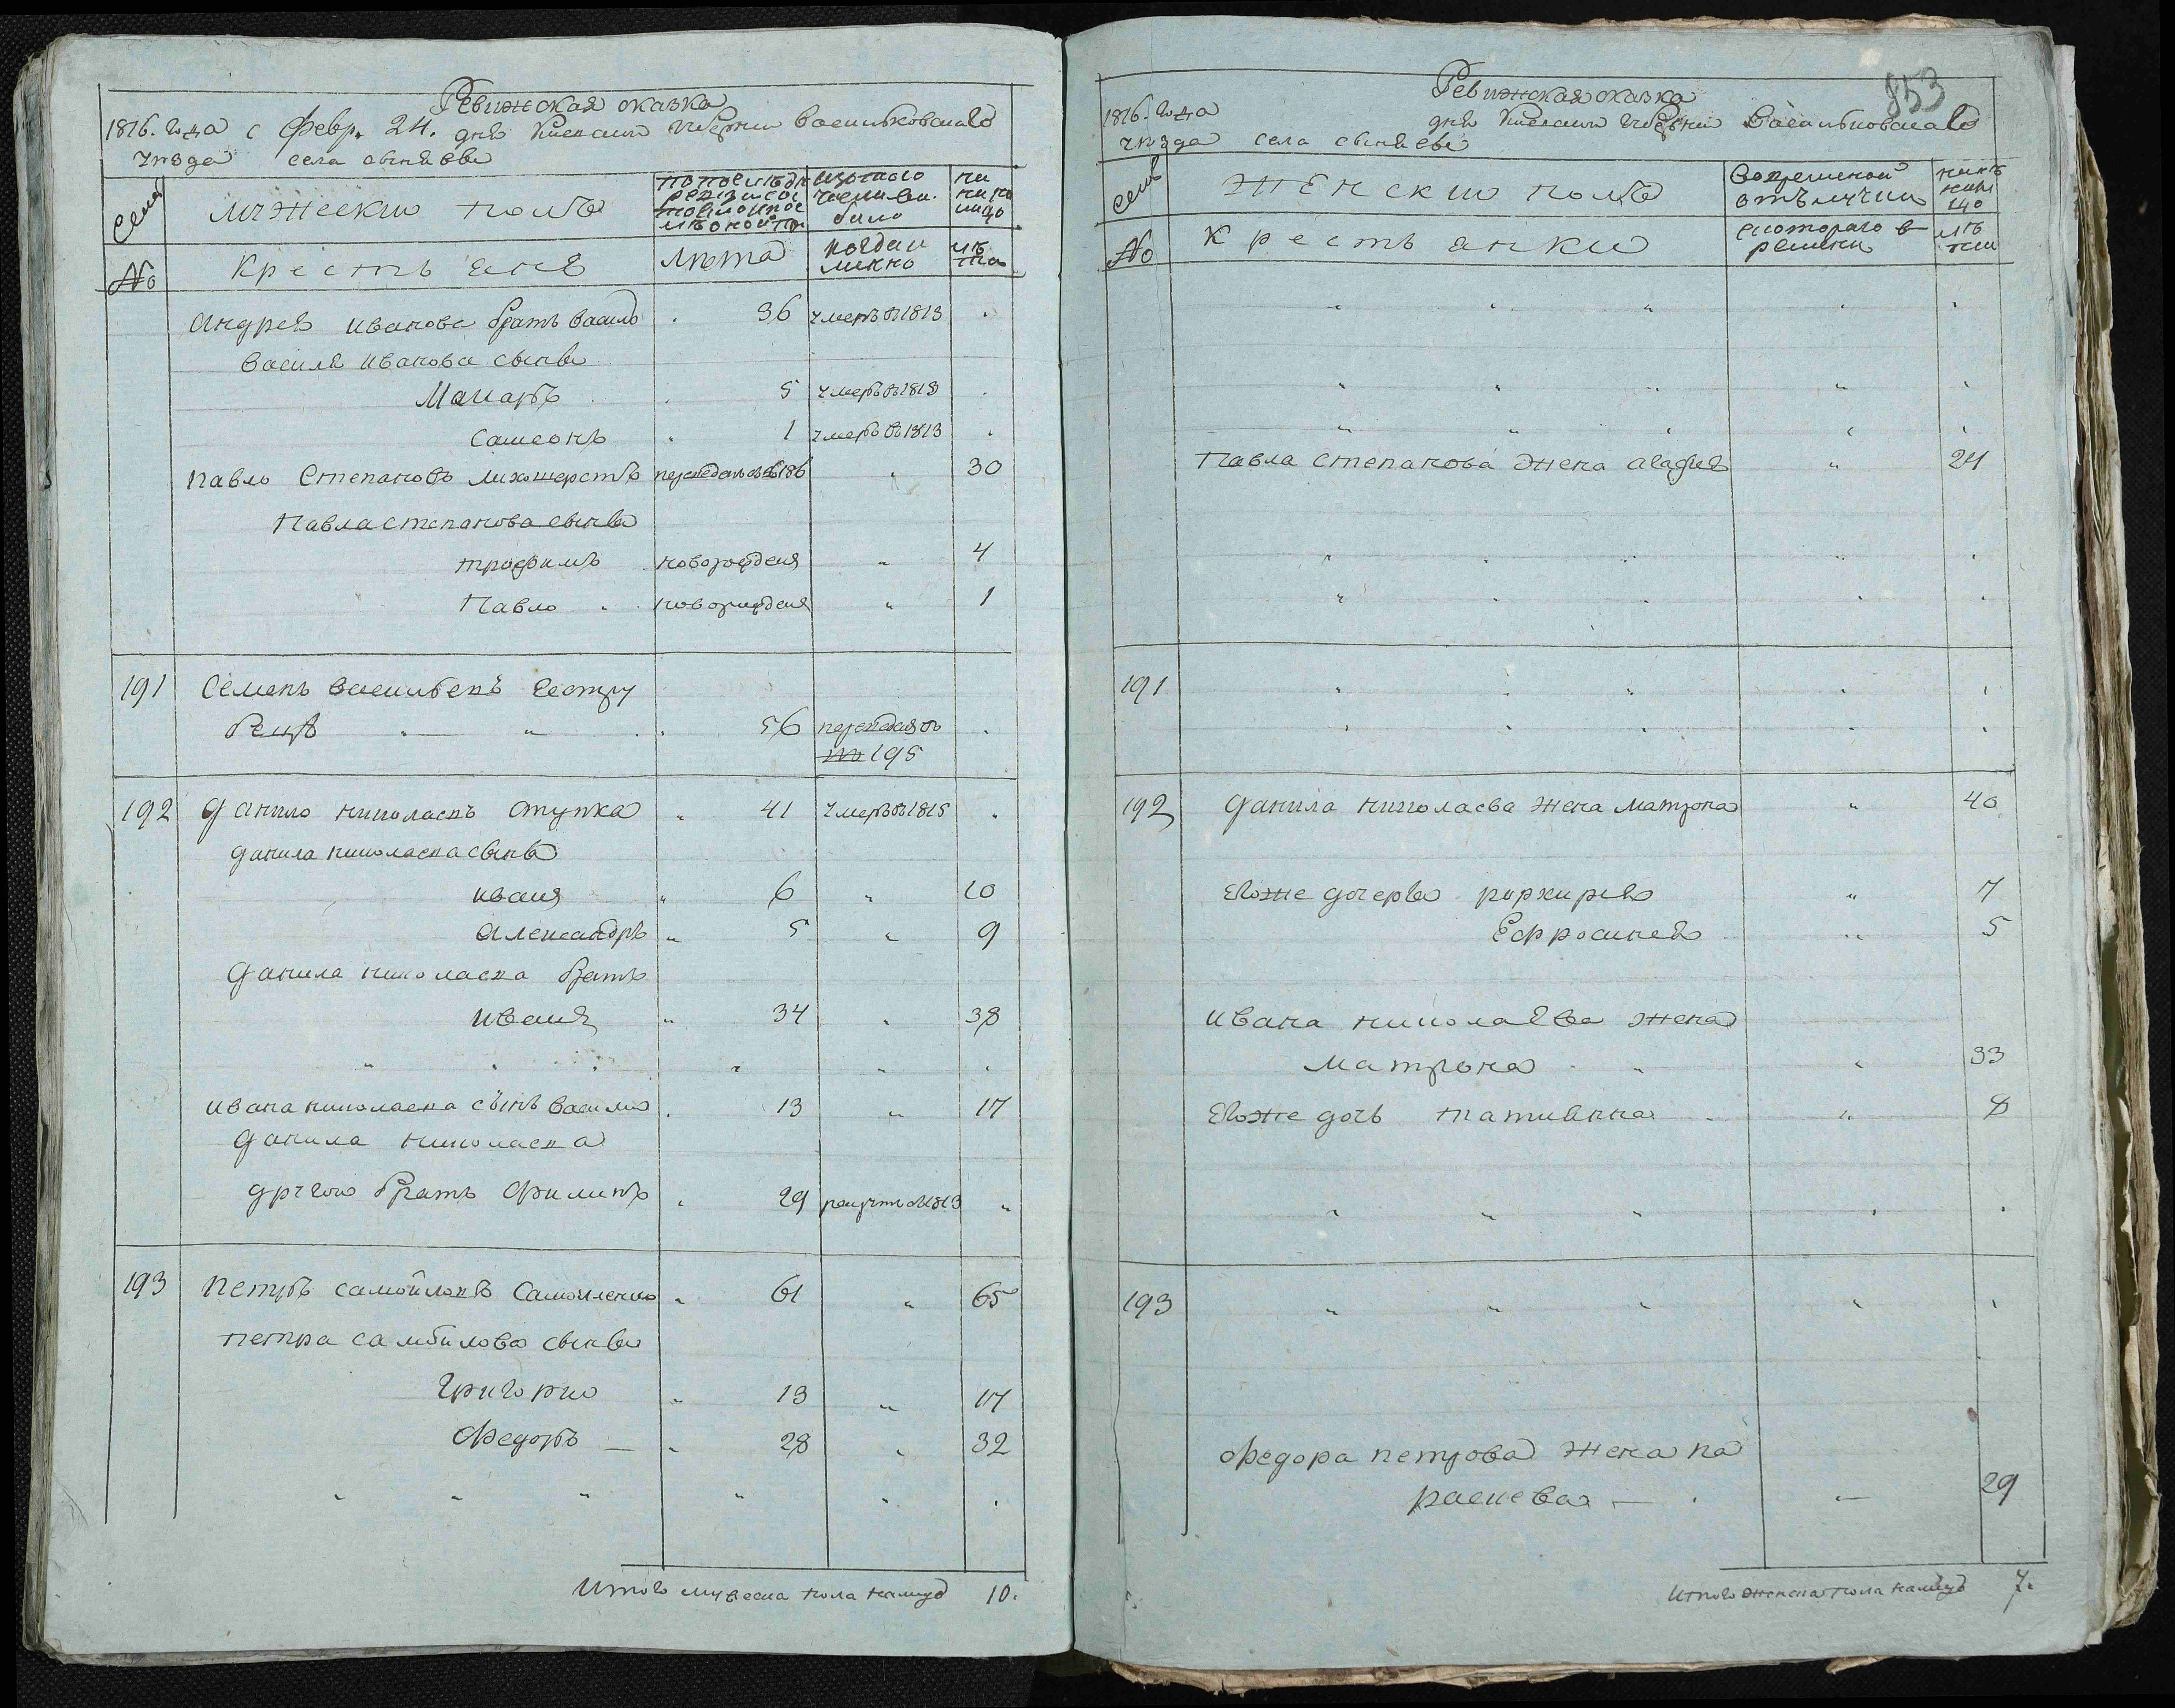 Ревижская сказка
1816. года с Февр. 24. дня Киевской Губернии Васильковскаго
уезда села
Семя
мужески полъ
по последн ревизи
изъ того числа
было
лицо
№
Крестьяне
лета
когда именно
лета
Андрея Иванова братъ Василь . 36 умеръ въ 1813 .
Василя Иванова сыны
Макаръ . 5 умеръ въ 1813 .
Самсонъ . 1 умеръ въ 1813 .
Павло Степановъ 30
Павла Степанова сыны
трофимъ новорожденъ " 4
Павло . новорожденъ " 1
191 Семенъ Васильевъ
56 переведенъ въ
№ 195
192 Данило Николаевъ Ступка . 41 умеръ въ 1815 .
Данила Николаева сыны
иванъ " 6 " 10
Александръ " 5 " 9
Данила николаева братъ
иванъ " 34 " 38
" " " " " .
ивана николаева сынъ василь . 13 " 17
Данила николаева
другой братъ Филипъ . 29 рекрутъ 1813 "
193 Петръ самойловъ Самойленко " 61 " 65
петра самойлова сыны
Григорий " 13 " 17
Федоръ — " 28 " 32
" " " " " .
Итого мужеска пола налицо 10.
853
Ревижская сказка
1816. года дня Киевской Губернии Васильковскаго
уезда села
Семя
Женски полъ
Во временной отлучки
ныне налицо
№
Крестьянки
с котораго времени
лета
" " " " .
" " " " .
" " " " .
Павла Степанова жена агафия " 24
" " " " .
" " " " .
191 " " " " .
" " " " .
192 Данила николаева жена матрона " 40
Евоже дочеры " 7
Ефросиния " 5
ивана николаева жена
матрона . " " 33
Евоже дочь татиянна . " 8
" " " " .
193 " " " " .
Федора петрова жена па
раскева — . — 29
Итого женска пола налицо 7.